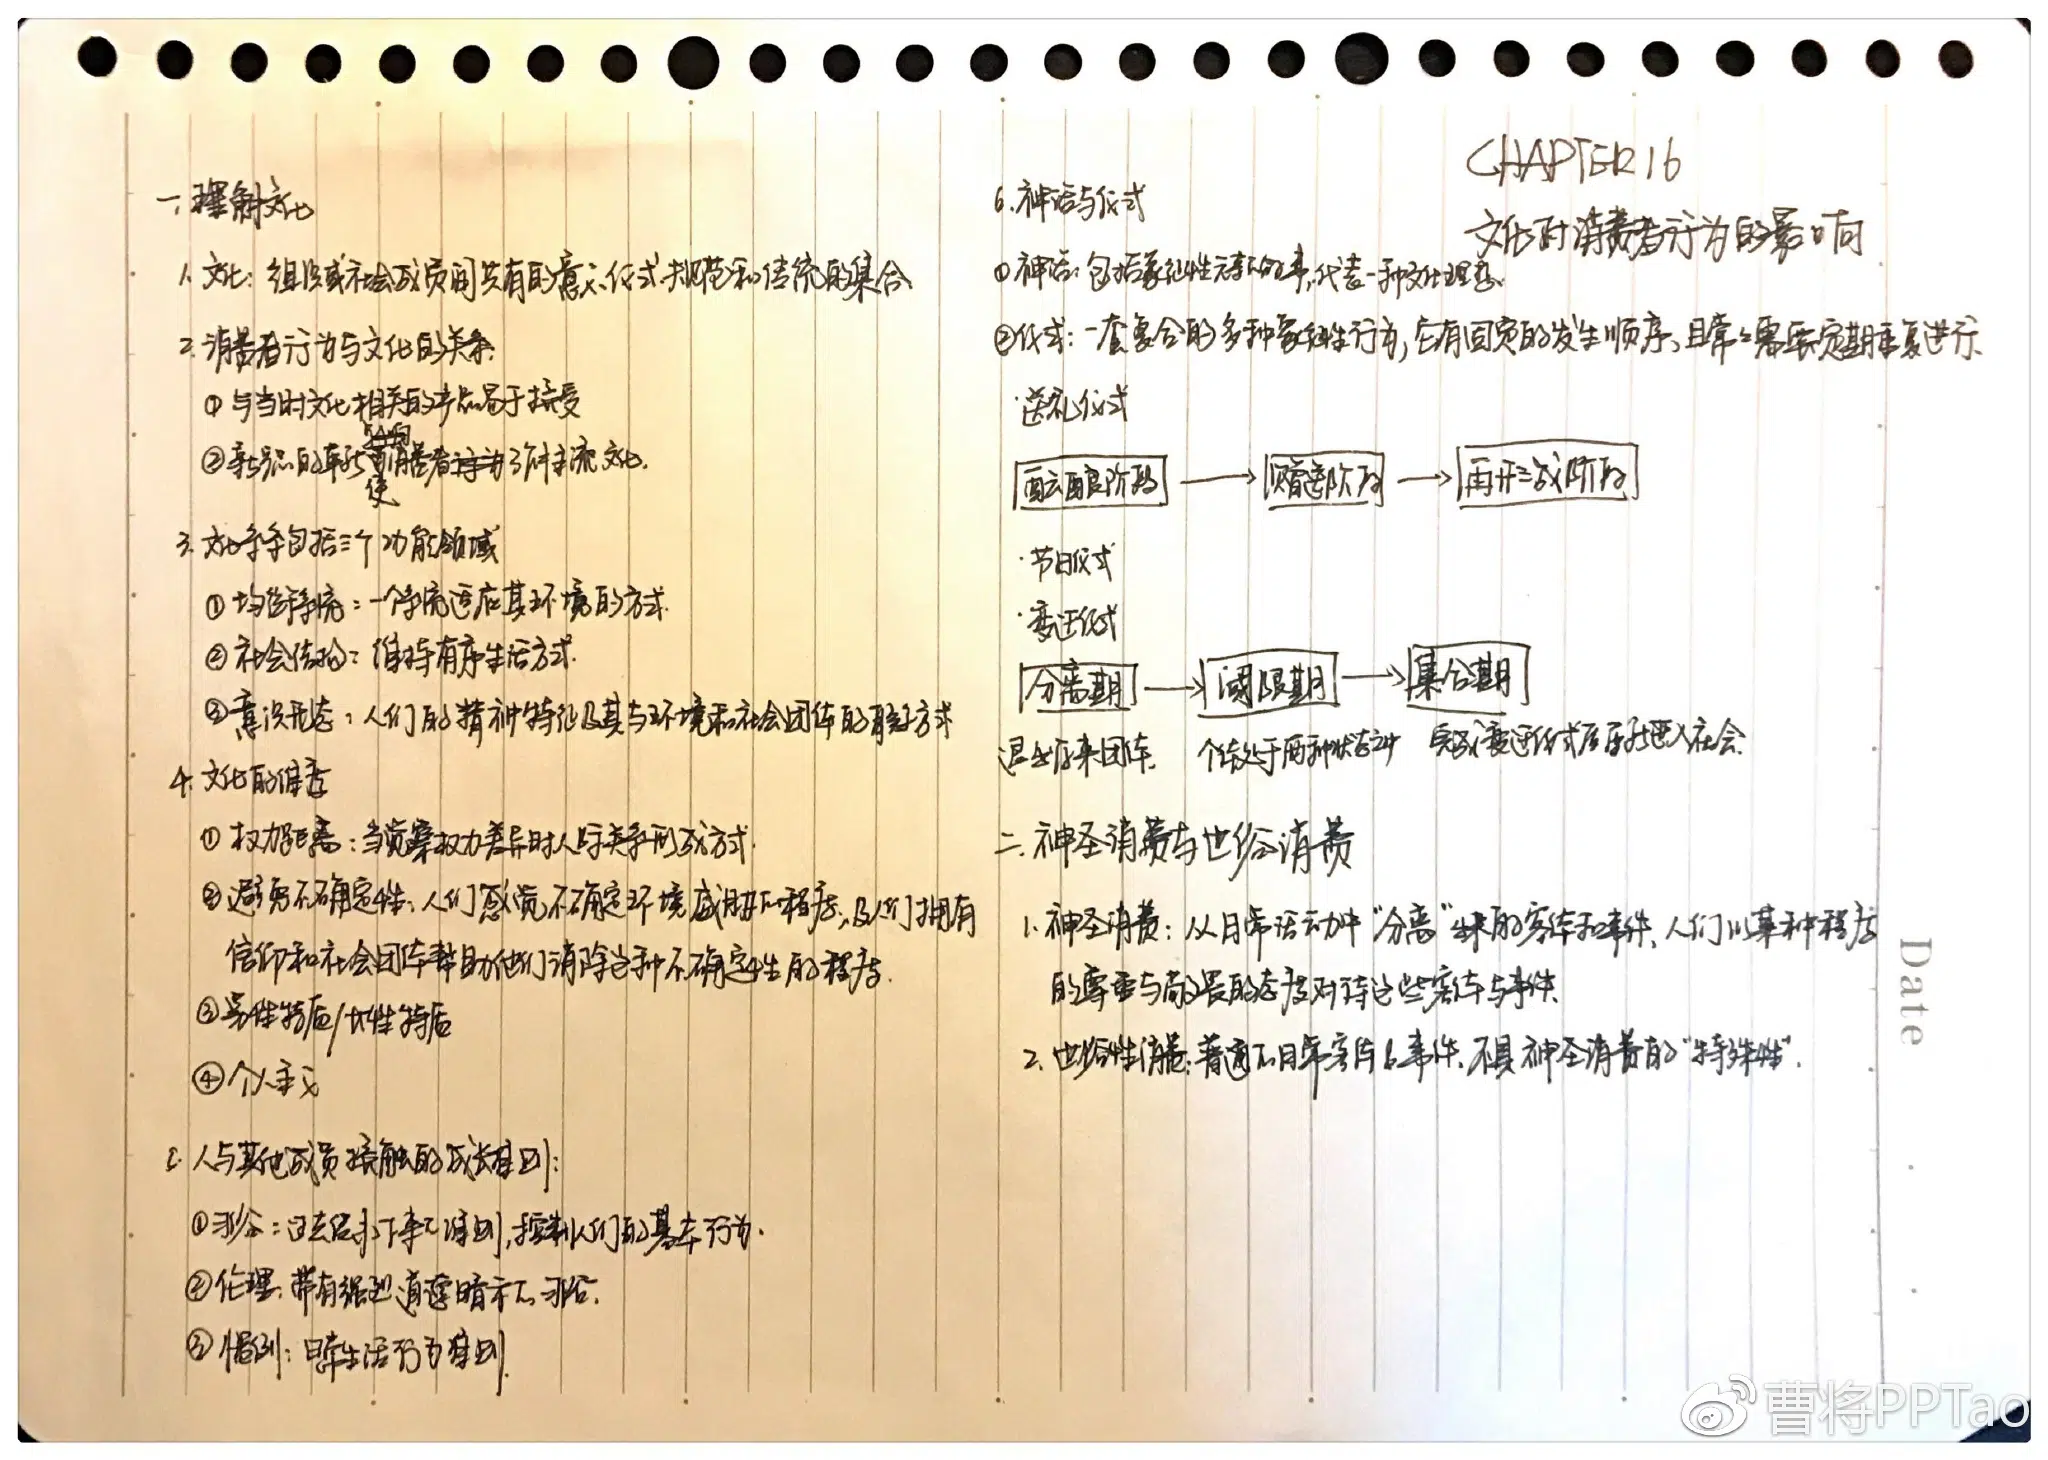 CHAPTER 16
文化对消费者行为的影响
一、理解文化
1. 文化：组织或社会成员间共有的意义、仪式、规范和传统的集合
2. 消费者行为与文化的关系
① 与当时文化相关的产品易于接受
② 新品的 使消费者了解主流文化.
3. 文化体系包括三个功能领域
① 均衡体系：一个体系适应其环境的方式.
② 社会结构：维持有序生活方式.
③ 意识形态：人们的精神特征及其与环境和社会团体的联系方式
4. 文化的维度
① 权力距离：当觉察权力差异时人际关系形成方式.
② 避免不确定性：人们感觉不确定环境威胁的程度，及人们拥有
信仰和社会团体帮助他们消除这种不确定性的程度.
③ 男性特质/女性特质
④ 个人主义
5. 人与其他成员接触的成长准则：
① 习俗：过去传承下来的准则，控制人们的基本行为.
② 伦理：带有强烈道德暗示的习俗.
③ 惯例：日常生活行为准则.
6. 神话与仪式
① 神话：包括象征性元素的故事，代表一种文化理想.
② 仪式：一套复合的多种象征性行为，它有固定的发生顺序，且常常需要定期重复进行.
·送礼仪式
酝酿阶段 → 赠送阶段 → 再形成阶段
·节日仪式
·变迁仪式
分离期 → 阈限期 → 集合期
退出原来团体. 个体处于两种状态之中 完成变迁仪式后重新进入社会.
二、神圣消费与世俗消费
1. 神圣消费：从日常活动中“分离”出来的客体和事件、人们以某种程度
的尊重与敬畏的态度对待这些客体与事件.
2. 世俗性消费：普通的日常客体与事件、不具神圣消费的“特殊性”.
Date
曹将PPTao